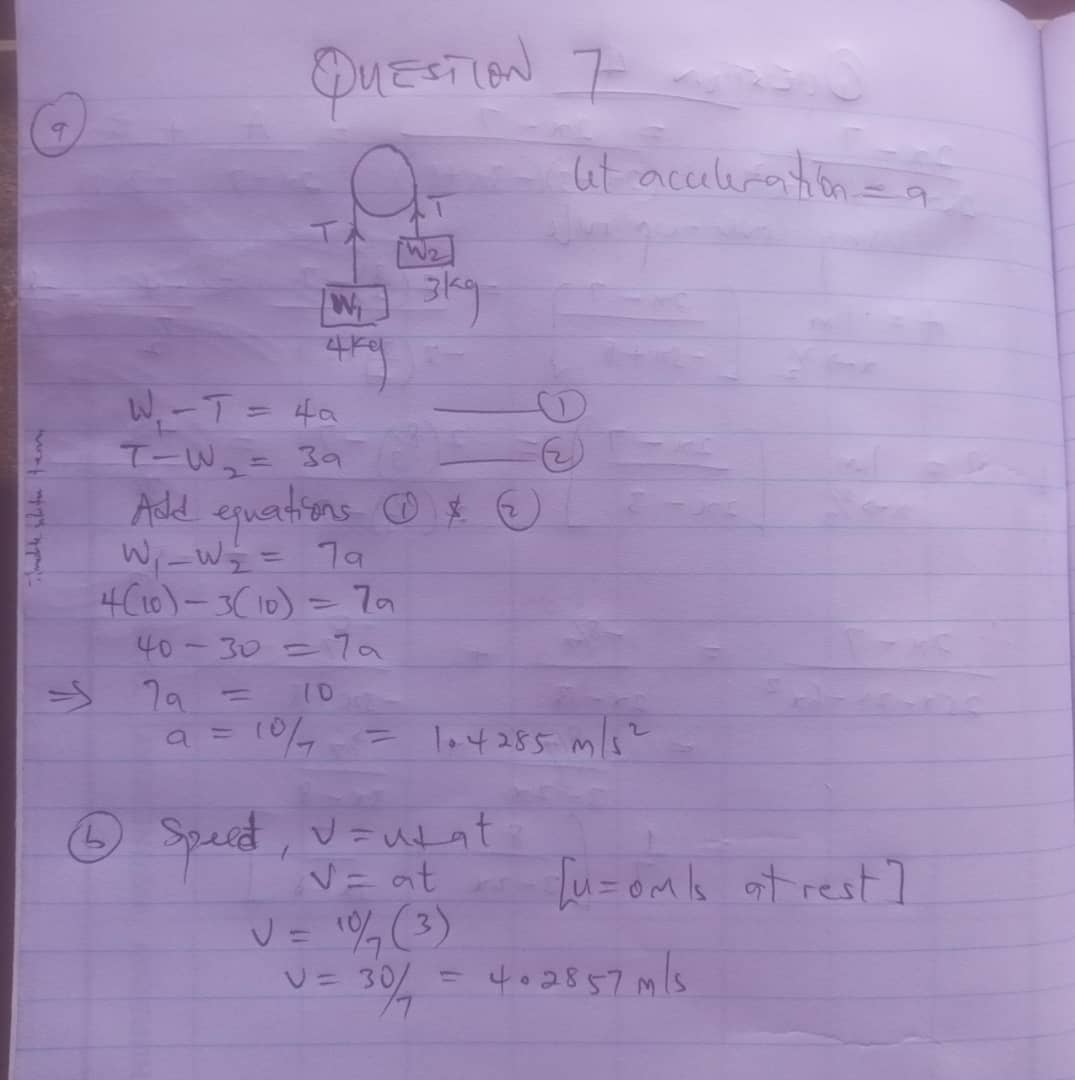 QUESTION 7
a
let acceleration = a
T T
W2
3kg
W1
4kg
W1 - T = 4a ——— ①
T - W2 = 3a ——— ②
Add equations ① & ②
W1 - W2 = 7a
4(10) - 3(10) = 7a
40 - 30 = 7a
⇒ 7a = 10
a = 10/7 = 1.4285 m/s²
b Speed, V = u+at
V = at [u=0m/s at rest]
V = 10/7 (3)
V = 30/7 = 4.2857 m/s